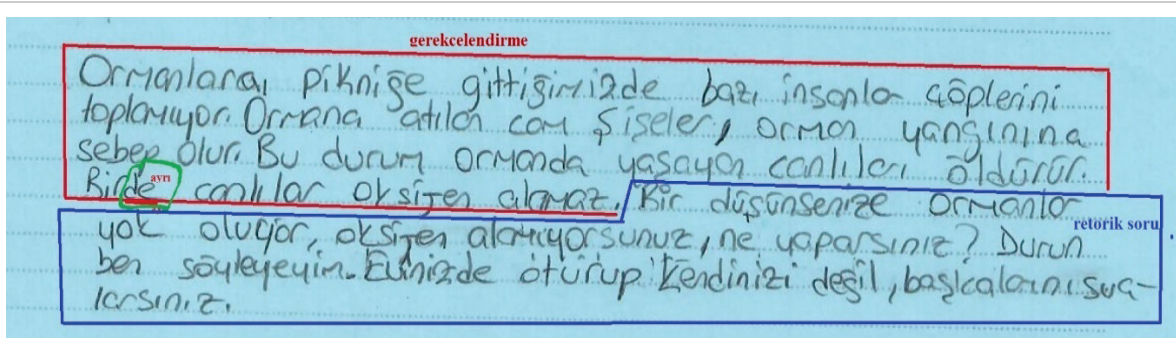 gerekcelendirme
Ormanlara, pikniğe gittiğimizde bazı insanlar çöplerini
toplamıyor. Ormana atılan cam şişeler, orman yangınına
sebep olur. Bu durum ormanda yaşayan canlıları öldürür.
Birde ayrı canlılar oksijen alamaz. Bir düşünsenize ormanlar
retorik soru
yok oluyor, oksijen alamıyorsunuz, ne yaparsınız? Durun
ben söyleyeyim. Evinizde oturup kendinizi değil, başkalarını suç-
larsınız.